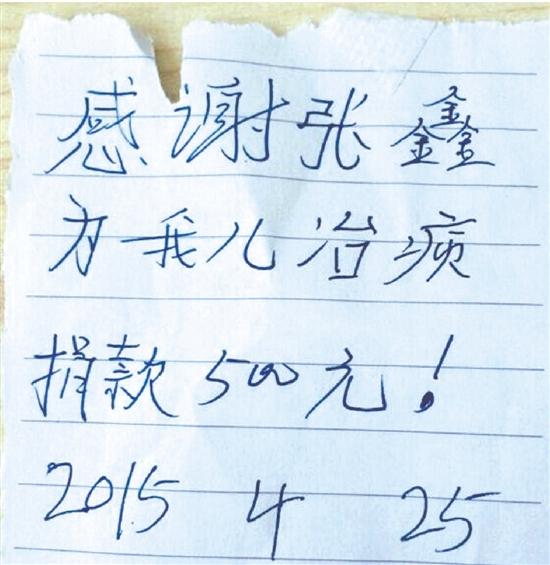 感谢张鑫
为我儿治病
捐款500元！
2015 4 25